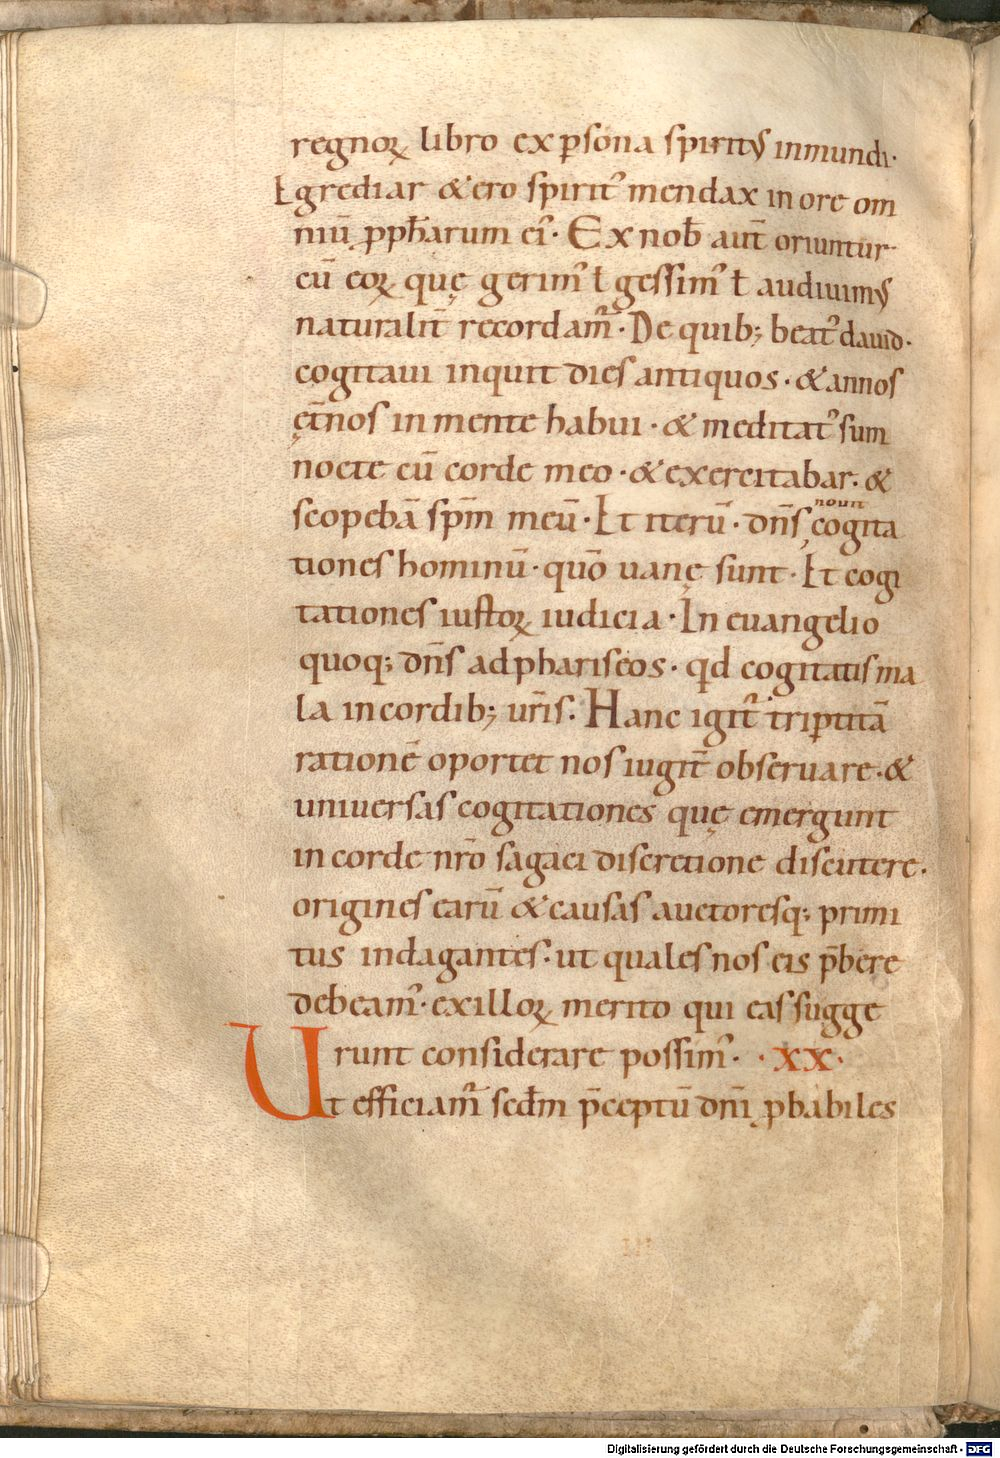 regnoꝝ libro ex ꝑsona spiritꝰ inmundi·
Egrediar & ero spirit᾿ mendax in ore om
niū ꝓph̄arum ei᾿· Ex nob̄ aut̄ oriuntur·
cū eoꝝ quę gerim᾿ ł gessim᾿ ł audiuimꝰ
naturalit̄ recordam᾿· De quib; beat᾿ dauid·
cogitaui inquit dies antiquos· & annos
ęt̄nos in mente habui· & meditat᾿ sum
nocte cū corde meo· & exercitabar· &
scopebā sp̄m meū· Et iterū· dn̄s nouit cogita
tiones hominū· quō uanę sunt· Et cogi
tationes iustoꝝ iudicia· In euangelio
quoq; dn̄s ad phariseos· qd cogitatis ma
la in cordib; ur̄is· Hanc igit᾿ triꝑtitā
rationē oportet nos iugit̄ obseruare· &
uniuersas cogitationes quę emergunt
in corde nr̄o sagaci discretione discutere·
origines earū & causas auctoresq; primi
tus indagantes· ut quales nos eis p̄bere
debeam᾿· ex illoꝝ merito qui eas sugge
runt considerare possim᾿· ·XX·
Ut efficiam᾿ scd̄m p̄ceptū dn̄i ꝓbabiles
Digitalisierung gefördert durch die Deutsche Forschungsgemeinschaft - DFG